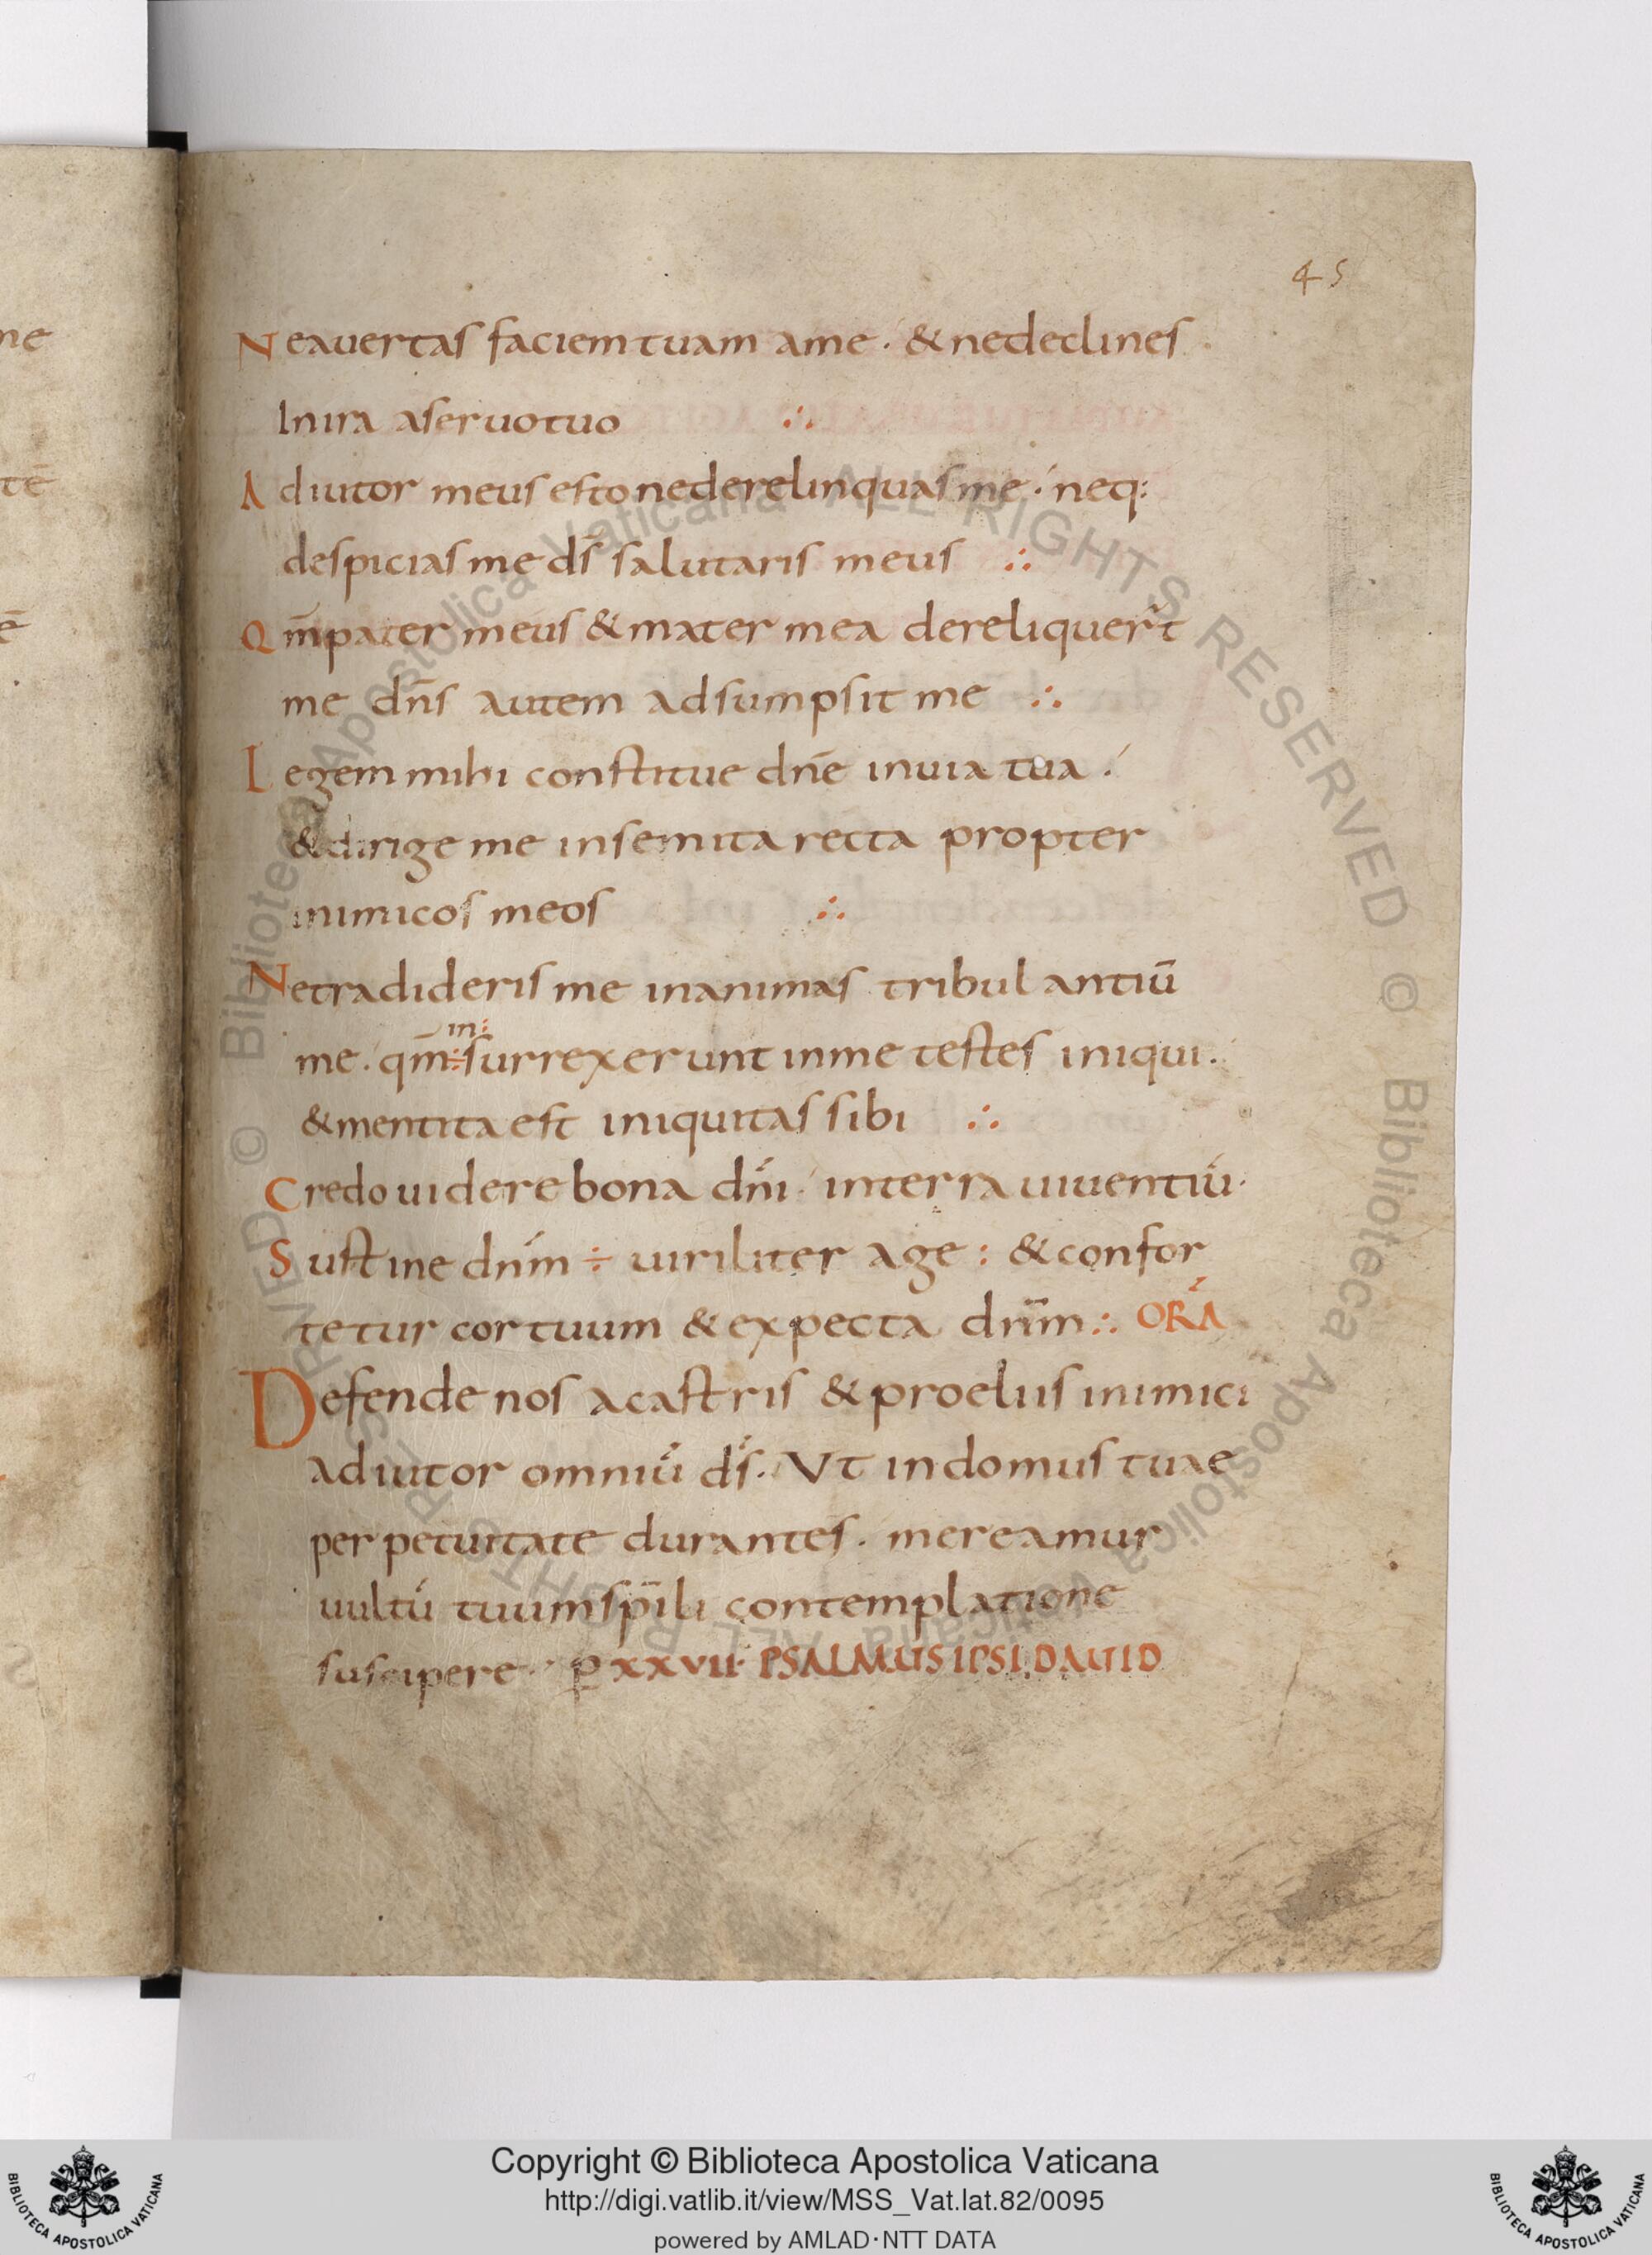 45
Ne auertas faciem tuam a me · & ne declines
In ira a seruo tuo ∴
Adiutor meus esto ne derelinquas me · neq:
despicias me d̄s salutaris meus ∴
Qm̄ pater meus & mater mea dereliquer̄t
me dn̄s autem adsumpsit me ∴
Legem mihi constitue dn̄e in uia tua ·
& dirige me in semita recta propter
inimicos meos ∴
Ne tradideris me in animas tribulantiū
in:
me · qm̄ ÷ surrexerunt in me testes iniqui ·
& mentita est iniquitas sibi ∴
Credo uidere bona dn̄i · in terra uiuentiū ·
Sustine dn̄m ÷ uiriliter age : & confor
tetur cor tuum & expecta dn̄m ∴ ORA
Defende nos a castris & proeliis inimici
adiutor omniū d̄s · Vt in domus tuae
perpetuitate durantes · mereamur
uultū tuum sp̄ili contemplatione
suscipere · P XXVII · PSALMUS IPSI DAUID
© Biblioteca Apostolica Vaticana ALL RIGHTS RESERVED © Biblioteca Apostolica Vaticana ALL RIGHTS RESERVED
Copyright © Biblioteca Apostolica Vaticana
http://digi.vatlib.it/view/MSS_Vat.lat.82/0095
powered by AMLAD·NTT DATA
BIBLIOTECA APOSTOLICA VATICANA
BIBLIOTECA APOSTOLICA VATICANA